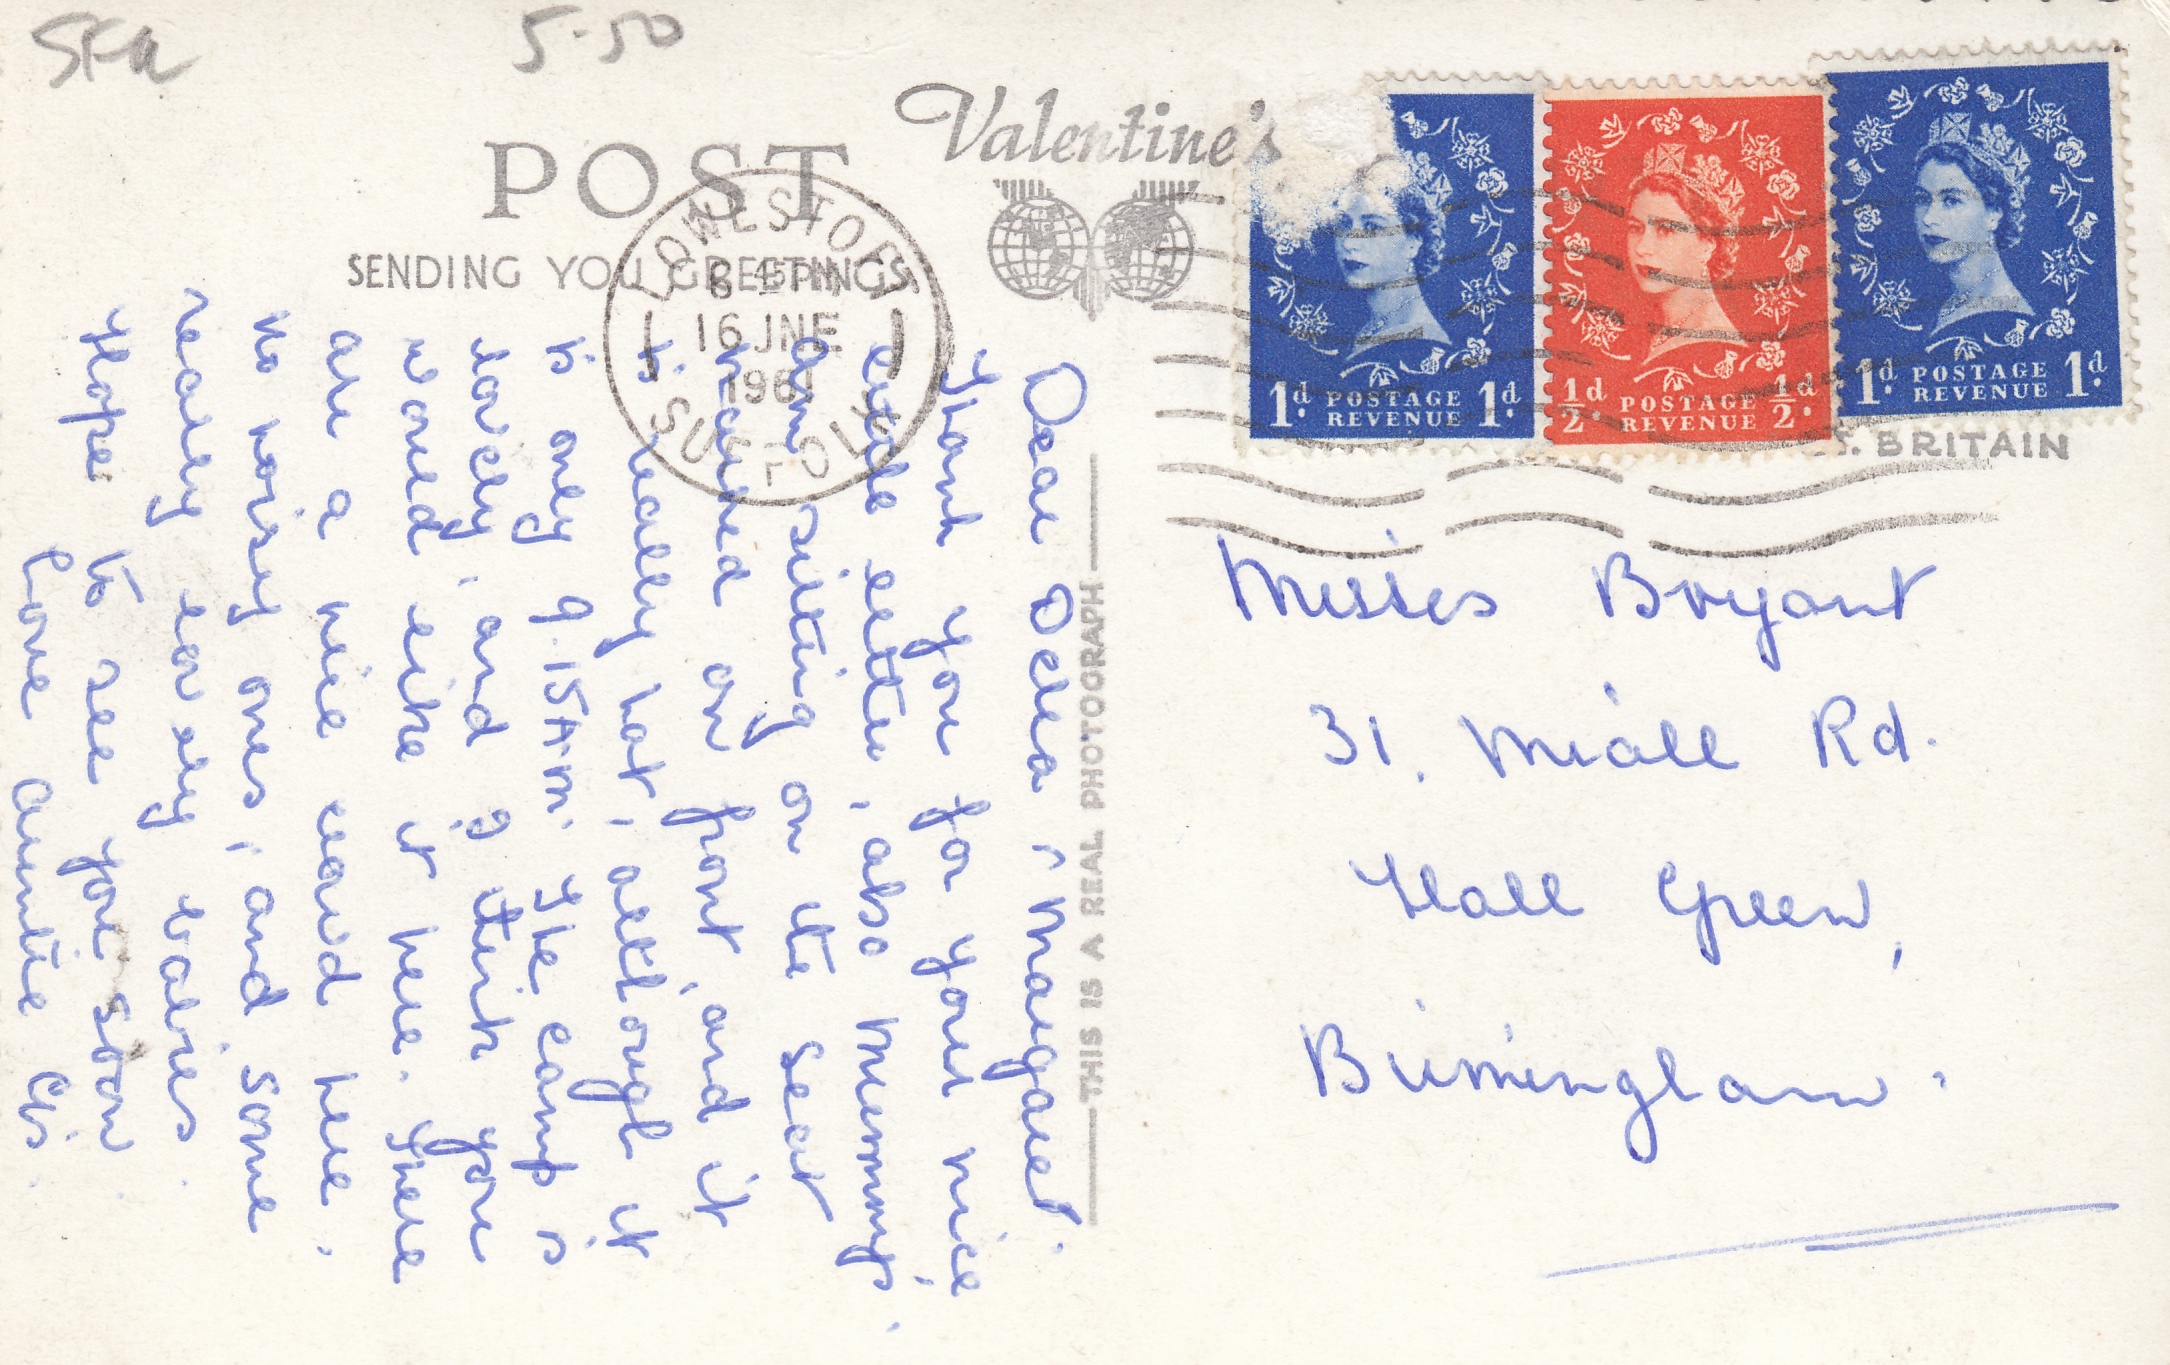 SFA
5-50
POST
SENDING YOU GREETINGS
Valentine's
LOWESTOFT
6 45 PM
16 JNE
1961
SUFFOLK
1d POSTAGE REVENUE 1d
½d POSTAGE REVENUE ½d
1d POSTAGE REVENUE 1d
T. BRITAIN
THIS IS A REAL PHOTOGRAPH
Dear Delia, Margaret.
Thank you for your nice
little letter, also Mummys.
am sitting on the seat
on front, and it
is really hot, although it
is only 9.15 A.m. The camp is
lovely, and I think you
would like it here. There
are a nice crowd here,
no noisy ones, and some
really lovely babies.
Hope to see you soon.
Love Auntie Cis.
Misses Bryant
31, Miall Rd.
Hall Green,
Birmingham.